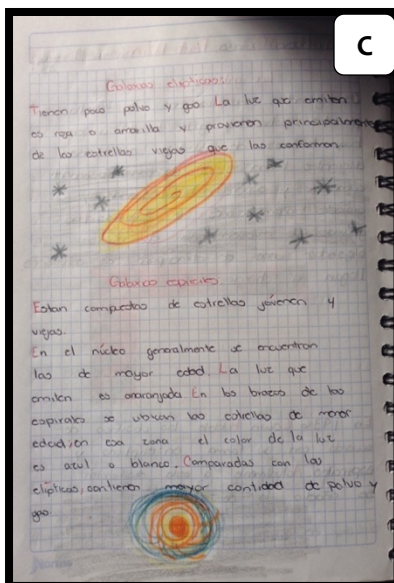 C
Galaxias elípticas:
Tienen poco polvo y gas La luz que emiten
es roja o amarilla y provienen principalmente
de las estrellas viejas que las conforman.
Galaxias espirales.
Estan compuestas de estrellas jóvenen y
viejas.
En el núcleo generalmente se encuentran
las de mayor edad. La luz que
emiten es anaranjada En los brazos de las
espirales se ubican las estrellas de menor
edad, en esa zona el color de la luz
es azul o blanco. Comparadas con las
elípticas, contienen mayor contidad de polvo y
gas.
Norma